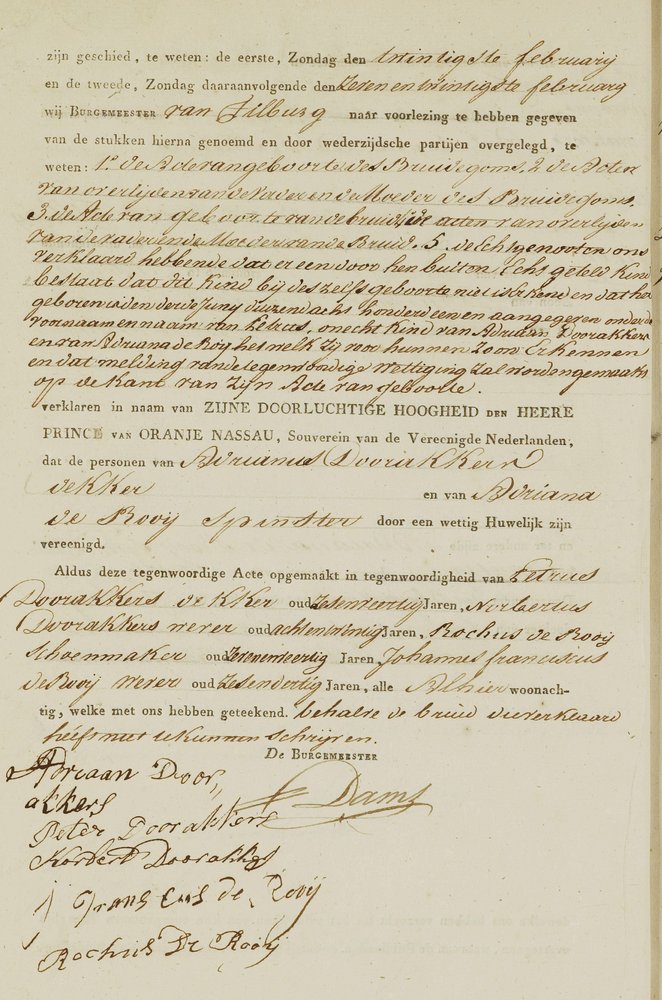 zijn geschied, te weten: de eerste, Zondag den twintigste february
en de tweede, Zondag daaraanvolgende den Zeven en twintigste february
wij BURGEMEESTER van Tilburg naar voorlezing te hebben gegeven
van de stukken hierna genoemd en door wederzijdsche partijen overgelegd, te
weten: 1e de Acte van geboorte des Bruidegoms, 2 de Acten
van overlijden van de Vader en de Moeder des Bruidegoms.
3. de Acte van geboorte van de bruid 4 de acten van overlijden
van de vader en de Moeder van de Bruid. 5. de Echtgenooten ons
verklaard hebbende dat er een door hen buiten Echt geteld Kind
bestaat dat dit Kind bij deszelfs geboorte niet is Erkend en dat het
geboren is den derde Juny duizend acht honderd een en aangegeven onder de
voornaam en naam van Petrus, onecht Kind van Adriaan Doorakkers
en van Adriana de Roy het welk Zij voor hunnen Zoon Erkennen
en dat melding van de tegenwoordige Wettiging Zal worden gemaakt
op de kant van Zijn Acte van geboorte.
verklaren in naam van ZIJNE DOORLUCHTIGE HOOGHEID DEN HEERE
PRINCE VAN ORANJE NASSAU, Souverein van de Vereenigde Nederlanden,
dat de personen van Adrianus Doorakkers
dekker en van Adriana
de Rooij Spinster door een wettig Huwelijk zijn
vereenigd.
Aldus deze tegenwoordige Acte opgemaakt in tegenwoordigheid van Petrus
Doorakkers dekker oud Zesenveertig Jaren, Norbertus
Doorakkers wever oud achtentwintig Jaren, Rochus de Rooij
Schoenmaker oud Zevenveertig Jaren Johannes franciscus
de Rooij wever oud Zesendertig Jaren, alle Alhier woonach-
tig, welke met ons hebben geteekend. behalve de bruid die verklaard
heeft niet te kunnen schrijven.
DE BURGEMEESTER
Adriaan Door
akkers
Dams
Peter Doorakkers
Norbert Doorakkers
J Frans Cus de Rooij
Rochus De Rooij